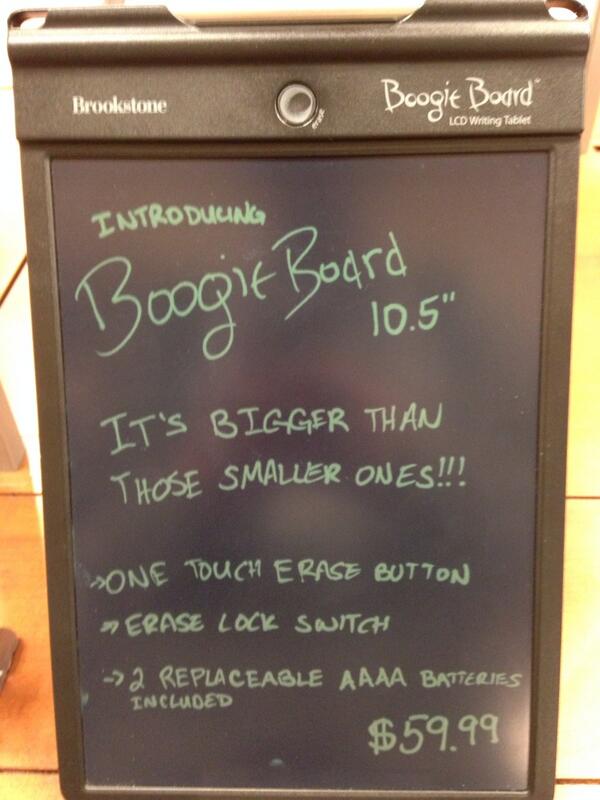 Brookstone
erase
Boogie Board™
LCD Writing Tablet
INTRODUCING
Boogie Board
10.5"
IT'S BIGGER THAN
THOSE SMALLER ONES!!!
→ONE TOUCH ERASE BUTTON
→ERASE LOCK SWITCH
→2 REPLACEABLE AAAA BATTERIES
INCLUDED
$59.99